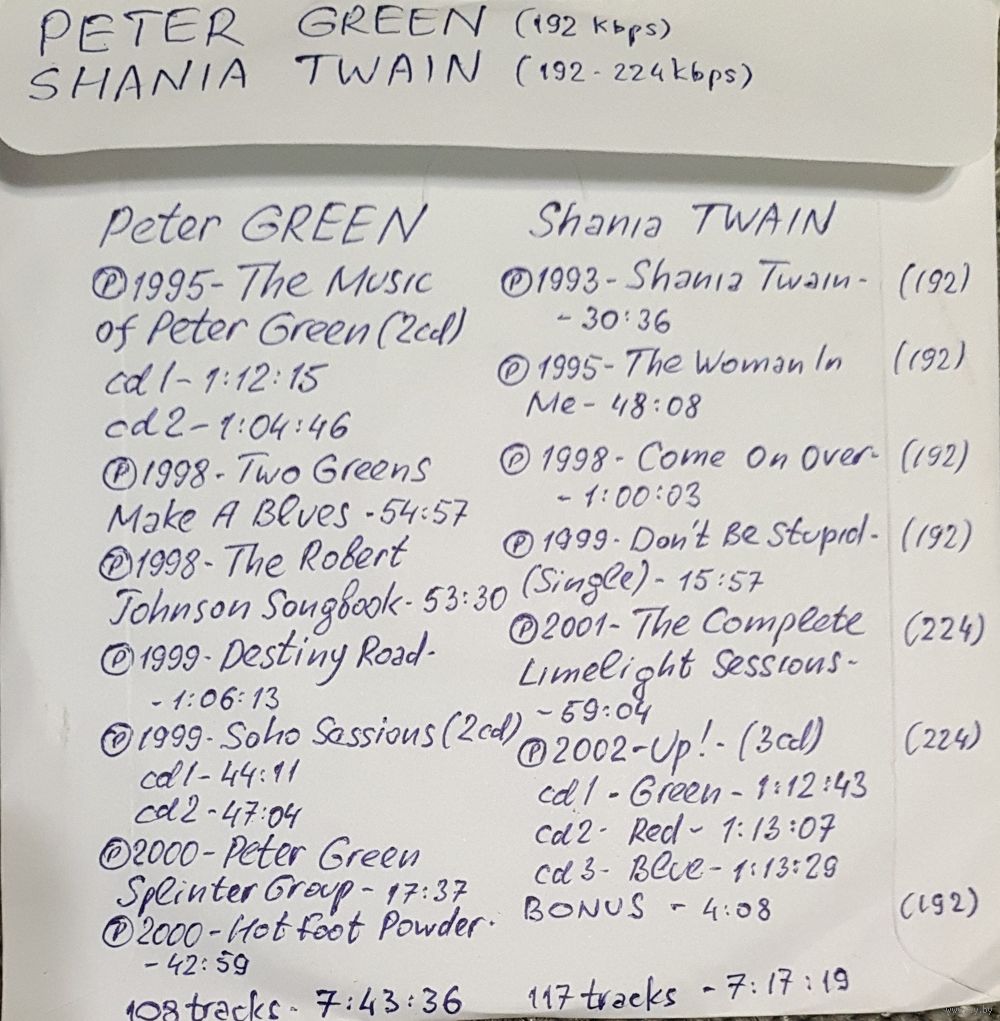 PETER GREEN (192 kbps)
SHANIA TWAIN (192-224kbps)
Peter GREEN
Ⓟ1995-The Music
of Peter Green (2cd)
cd1-1:12:15
cd2-1:04:46
Ⓟ1998-Two Greens
Make A Blues -54:57
Ⓟ1998-The Robert
Johnson Songbook-53:30
Ⓟ1999-Destiny Road-
-1:06:13
Ⓟ1999-Soho Sassions (2cd)
cd1-44:11
cd2-47:04
Ⓟ2000-Peter Green
Splinter Group-17:37
Ⓟ2000-Hot Foot Powder-
-42:59
108 tracks- 7:43:36
Shania TWAIN
Ⓟ1993-Shania Twain- (192)
-30:36
Ⓟ1995-The Woman In (192)
Me-48:08
Ⓟ1998-Come On Over- (192)
-1:00:03
Ⓟ1999-Don't Be Stupid- (192)
(Single)-15:57
Ⓟ2001-The Complete (224)
Limelight Sessions-
-59:04
Ⓟ2002-Up!-(3cd) (224)
cd1-Green-1:12:43
cd2-Red-1:13:07
cd3-Blue-1:13:29
BONUS - 4:08 (192)
117 tracks -7:17:19